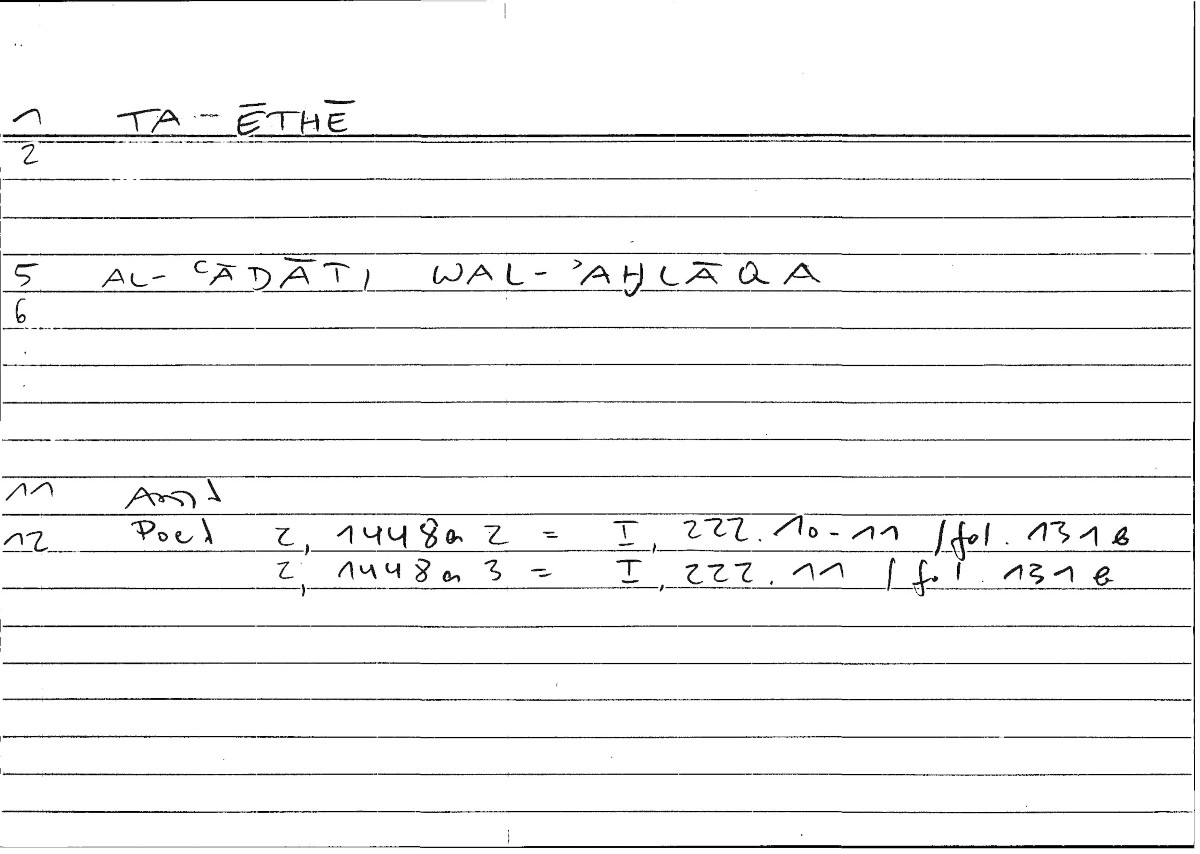 1 TA - ĒTHĒ
2
5 AL- ʿĀDĀTI WAL- ʾAḪLĀQA
6
11 Arist
12 Poet 2, 1448a 2 = I, 222. 10-11 / fol. 131b
2, 1448a 3 = I, 222. 11 / fol. 131b